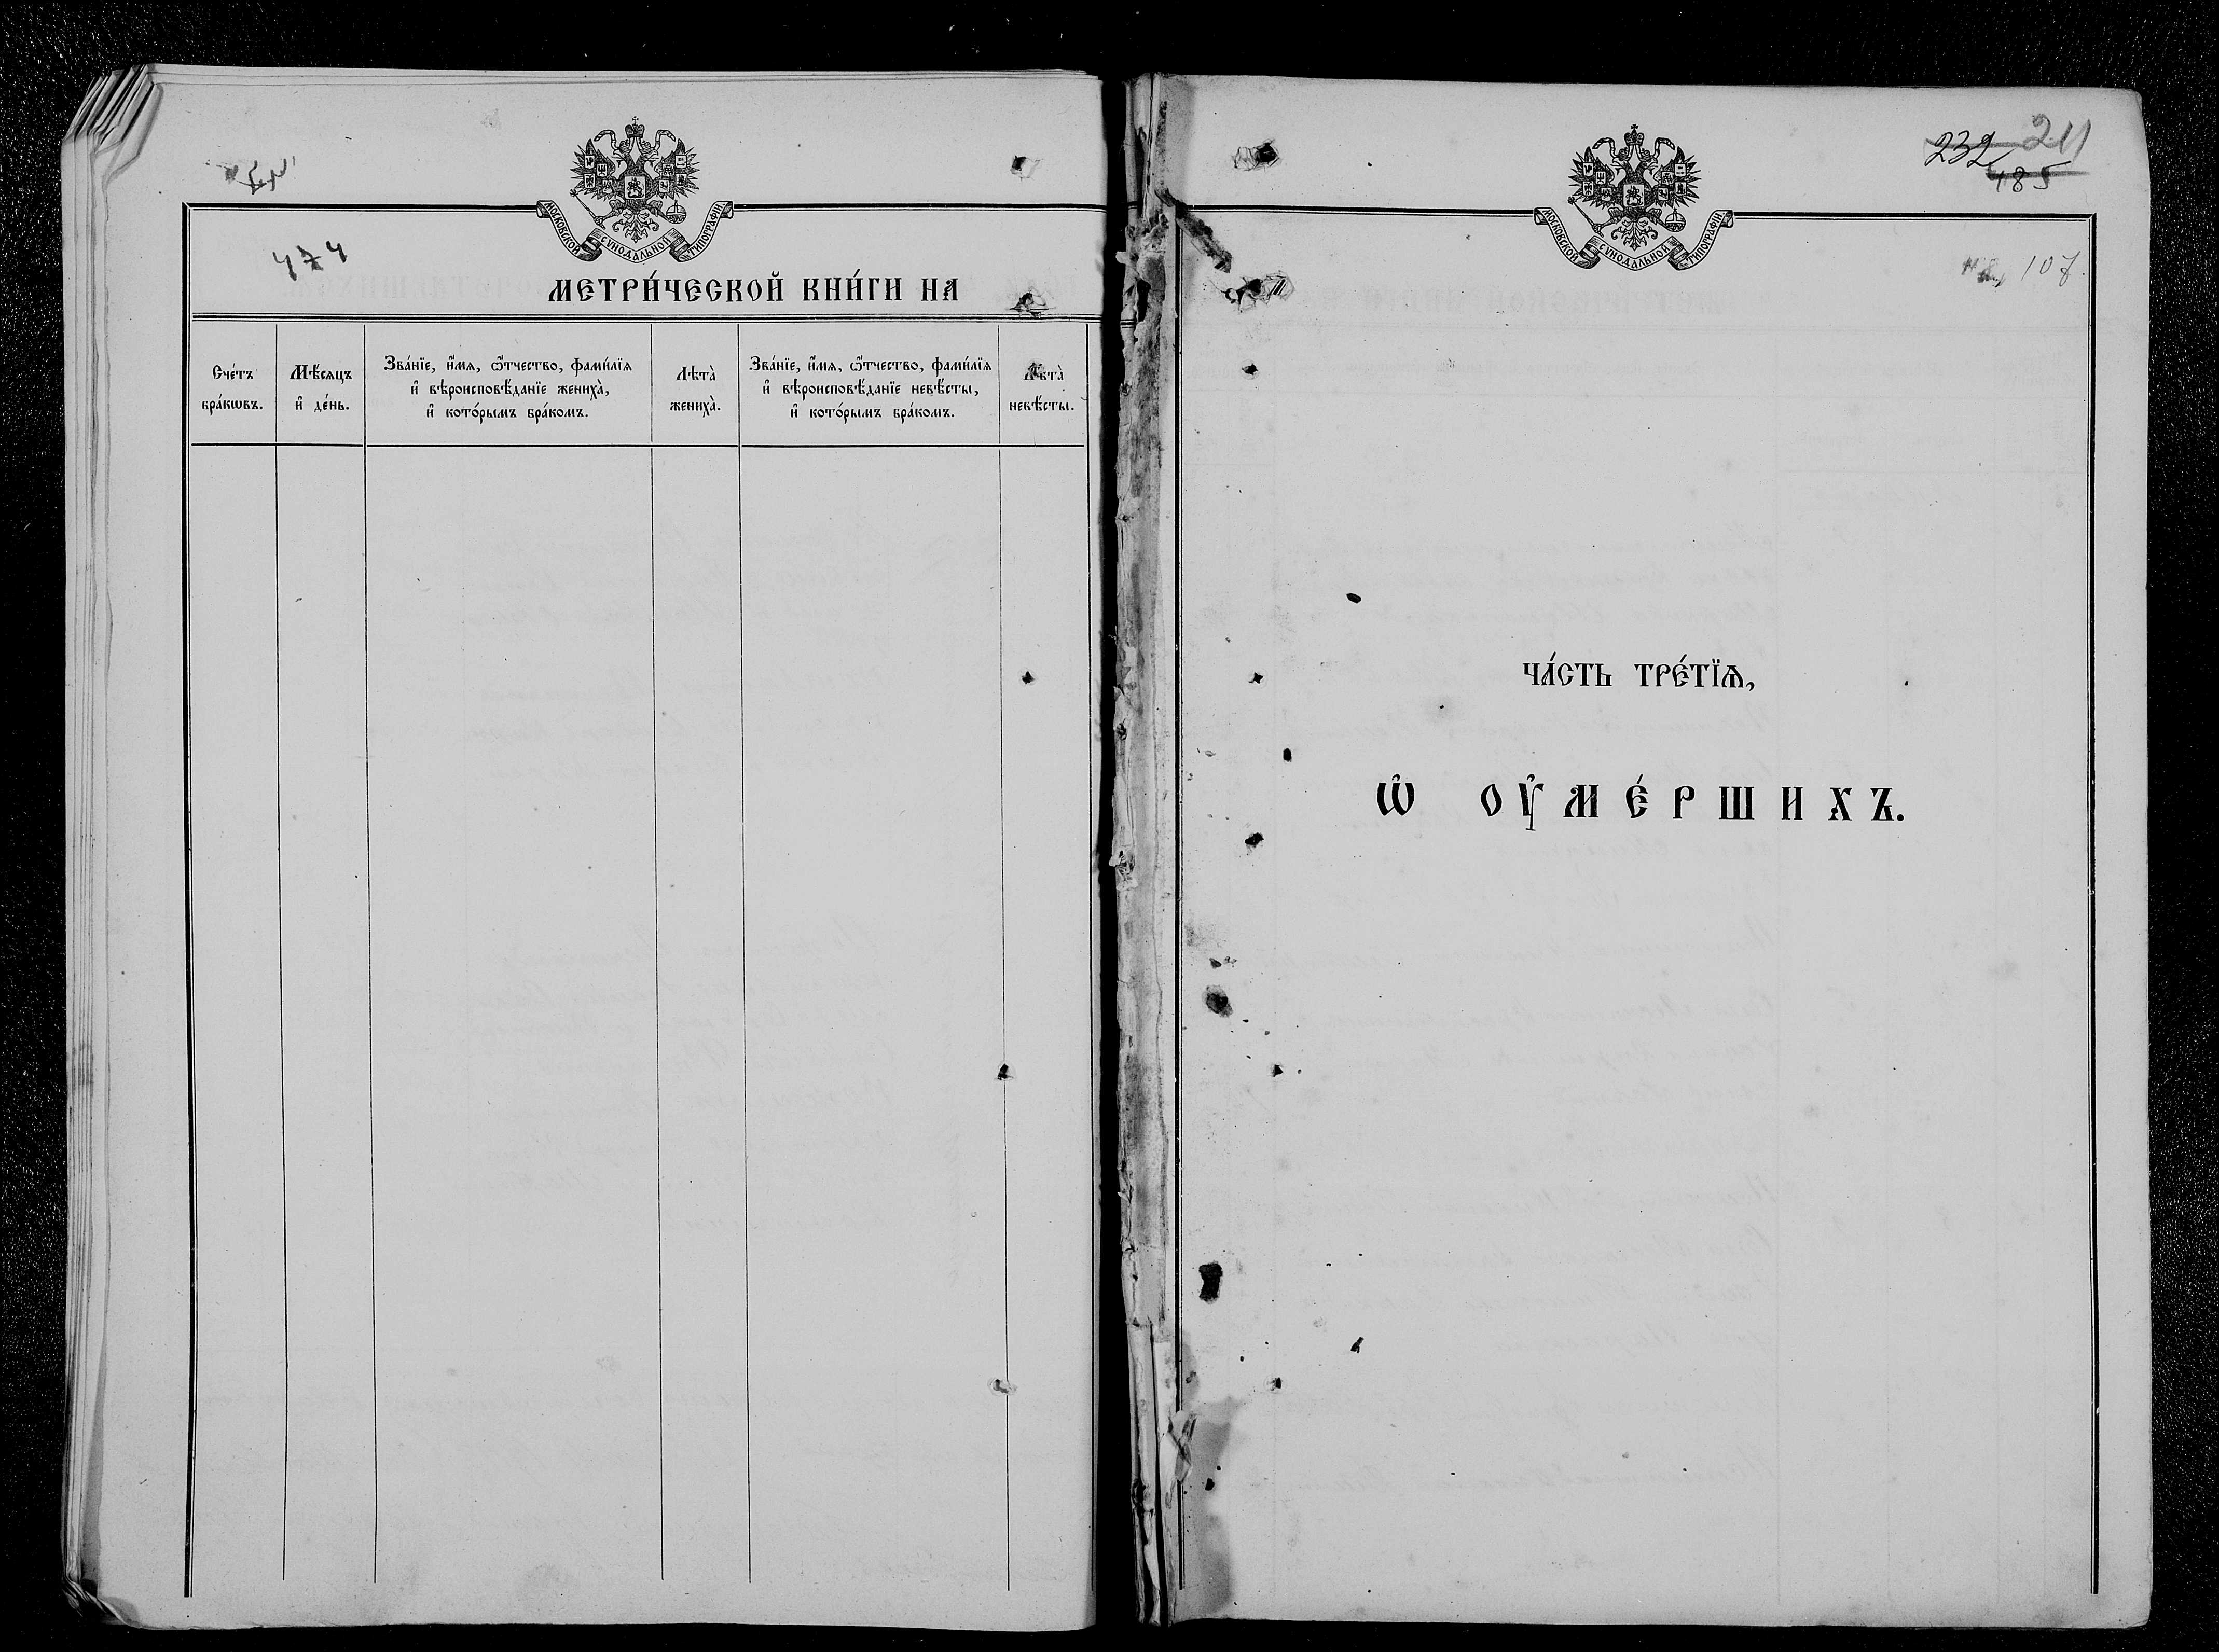 474
МОСКОВСКОЙ СѴНОДАЛЬНОЙ ТИПОГРАФІИ
МЕТРИ́ЧЕСКОЙ КНИ́ГИ НА
Сче́тъ бра́кѡвъ.
Мѣ́сяцъ и҆ де́нь.
Зва́нїе, и҆́мя, ѻ҆́тчество, фами́лїя
и҆ вѣроисповѣ́данїе жениха̀,
и҆ кото́рымъ бра́комъ.
Лѣта̀ жениха̀.
Зва́нїе, и҆́мя, ѻ҆́тчество, фами́лїя
и҆ вѣроисповѣ́данїе невѣ́сты,
и҆ кото́рымъ бра́комъ.
Лѣта̀ невѣ́сты.
232 211
485
МОСКОВСКОЙ СѴНОДАЛЬНОЙ ТИПОГРАФІИ
107.
ЧА́СТЬ ТРЕ́ТЇѦ,
Ѡ҆ ОУ҆МЕ́РШИХЪ.